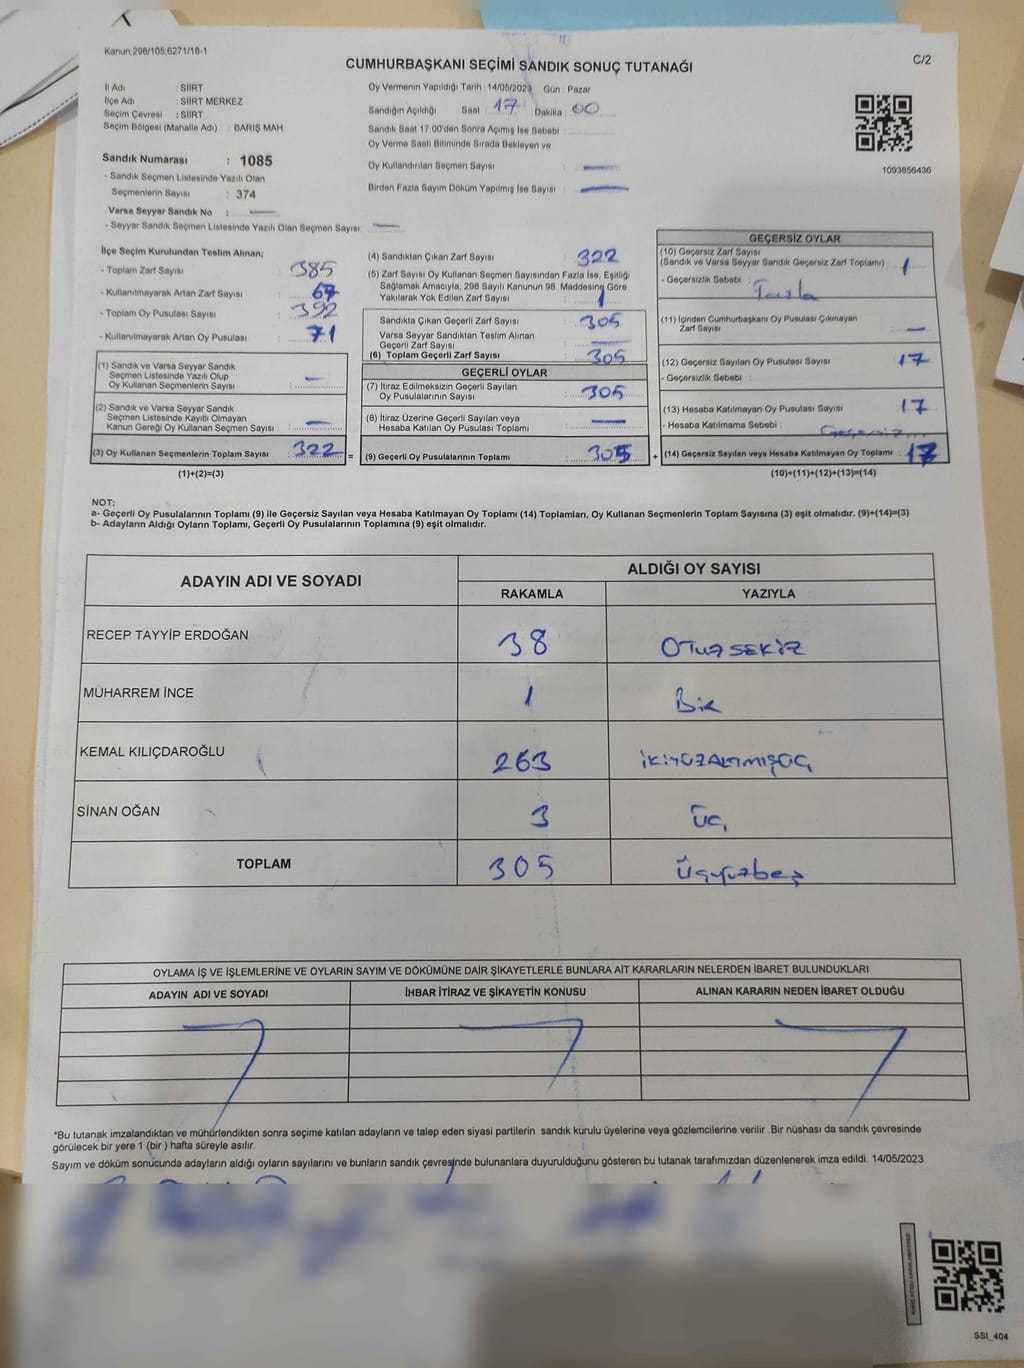 Kanun,298/105,6271/18-1
CUMHURBAŞKANI SEÇİMİ SANDIK SONUÇ TUTANAĞI
C/2
İl Adı : SİİRT
İlçe Adı : SİİRT MERKEZ
Seçim Çevresi : SİİRT
Seçim Bölgesi (Mahalle Adı) : BARIŞ MAH.
Sandık Numarası : 1085
- Sandık Seçmen Listesinde Yazılı Olan
Seçmenlerin Sayısı : 374
Varsa Seyyar Sandık No :
- Seyyar Sandık Seçmen Listesinde Yazılı Olan Seçmen Sayısı:
Oy Vermenin Yapıldığı Tarih 14/05/2023 Gün : Pazar
Sandığın Açıldığı Saat : 17 Dakika : 00
Sandık Saat 17.00'den Sonra Açımış İse Sebebi :
Oy Verme Saati Bitiminde Sırada Bekleyen ve
Oy Kullandırılan Seçmen Sayısı :
Birden Fazla Sayım Döküm Yapılmış İse Sayısı :
1093856436
İlçe Seçim Kurulundan Teslim Alınan;
- Toplam Zarf Sayısı : 385
- Kullanılmayarak Artan Zarf Sayısı : 67
- Toplam Oy Pusulası Sayısı : 392
- Kullanılmayarak Artan Oy Pusulası : 71
(1) Sandık ve Varsa Seyyar Sandık
Seçmen Listesinde Yazılı Olup
Oy Kullanan Seçmenlerin Sayısı :
(2) Sandık ve Varsa Seyyar Sandık
Seçmen Listesinde Kayıtlı Olmayan
Kanun Gereği Oy Kullanan Seçmen Sayısı :
(3) Oy Kullanan Seçmenlerin Toplam Sayısı : 322 =
(1)+(2)=(3)
(4) Sandıktan Çıkan Zarf Sayısı : 322
(5) Zarf Sayısı Oy Kullanan Seçmen Sayısından Fazla İse, Eşitliği
Sağlamak Amacıyla, 298 Sayılı Kanunun 98. Maddesine Göre
Yakılarak Yok Edilen Zarf Sayısı : 1
Sandıkta Çıkan Geçerli Zarf Sayısı : 305
Varsa Seyyar Sandıktan Teslim Alınan
Geçerli Zarf Sayısı :
(6) Toplam Geçerli Zarf Sayısı : 305
GEÇERLİ OYLAR
(7) İtiraz Edilmeksizin Geçerli Sayılan
Oy Pusulalarının Sayısı : 305
(8) İtiraz Üzerine Geçerli Sayılan veya
Hesaba Katılan Oy Pusulası Toplamı :
(9) Geçerli Oy Pusulalarının Toplamı : 305 +
GEÇERSİZ OYLAR
(10) Geçersiz Zarf Sayısı
(Sandık ve Varsa Seyyar Sandık Geçersiz Zarf Toplamı) : 1
- Geçersizlik Sebebi : Fazla
(11) İçinden Cumhurbaşkanı Oy Pusulası Çıkmayan
Zarf Sayısı : –
(12) Geçersiz Sayılan Oy Pusulası Sayısı : 17
- Geçersizlik Sebebi :
(13) Hesaba Katılmayan Oy Pusulası Sayısı : 17
- Hesaba Katılmama Sebebi : Geçersiz
(14) Geçersiz Sayılan veya Hesaba Katılmayan Oy Toplamı : 17
(10)+(11)+(12)+(13)=(14)
NOT:
a- Geçerli Oy Pusulalarının Toplamı (9) ile Geçersiz Sayılan veya Hesaba Katılmayan Oy Toplamı (14) Toplamları, Oy Kullanan Seçmenlerin Toplam Sayısına (3) eşit olmalıdır. (9)+(14)=(3)
b- Adayların Aldığı Oyların Toplamı, Geçerli Oy Pusulalarının Toplamına (9) eşit olmalıdır.
ADAYIN ADI VE SOYADI ALDIĞI OY SAYISI
RAKAMLA YAZIYLA
RECEP TAYYİP ERDOĞAN 38 OTUZSEKİZ
MUHARREM İNCE 1 Bir
KEMAL KILIÇDAROĞLU 263 İKİYÜZALTMIŞÜÇ
SİNAN OĞAN 3 ÜÇ
TOPLAM 305 Üçyüzbeş
OYLAMA İŞ VE İŞLEMLERİNE VE OYLARIN SAYIM VE DÖKÜMÜNE DAİR ŞİKAYETLERLE BUNLARA AİT KARARLARIN NELERDEN İBARET BULUNDUKLARI
ADAYIN ADI VE SOYADI İHBAR İTİRAZ VE ŞİKAYETİN KONUSU ALINAN KARARIN NEDEN İBARET OLDUĞU
*Bu tutanak imzalandıktan ve mühürlendikten sonra seçime katılan adayların ve talep eden siyasi partilerin sandık kurulu üyelerine veya gözlemcilerine verilir .Bir nüshası da sandık çevresinde
görülecek bir yere 1 (bir ) hafta süreyle asılır.
Sayım ve döküm sonucunda adayların aldığı oyların sayılarını ve bunların sandık çevresinde bulunanlara duyurulduğunu gösteren bu tutanak tarafımızdan düzenlenerek imza edildi. 14/05/2023
SSI_404